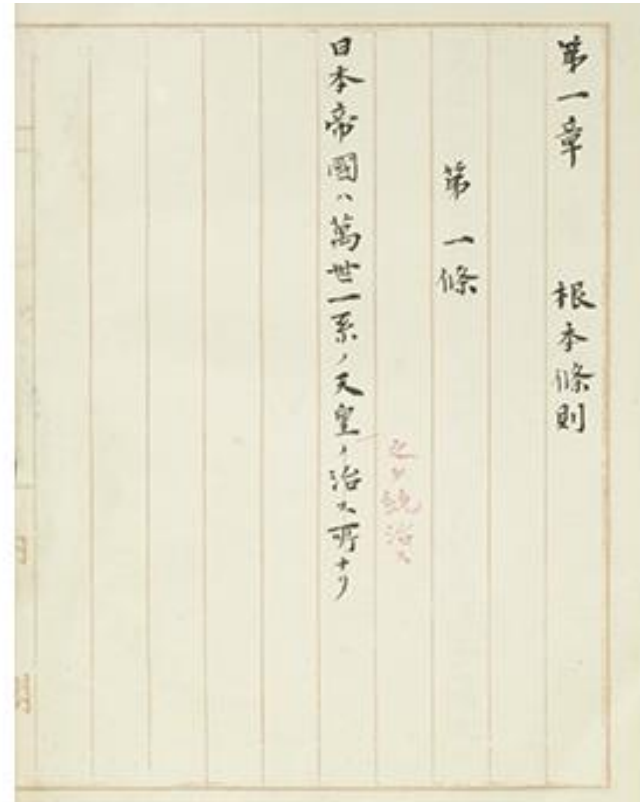 第一章 根本條則
第一條
之ヲ統治ス
日本帝國ハ萬世一系ノ天皇ノ治ス所ナリ